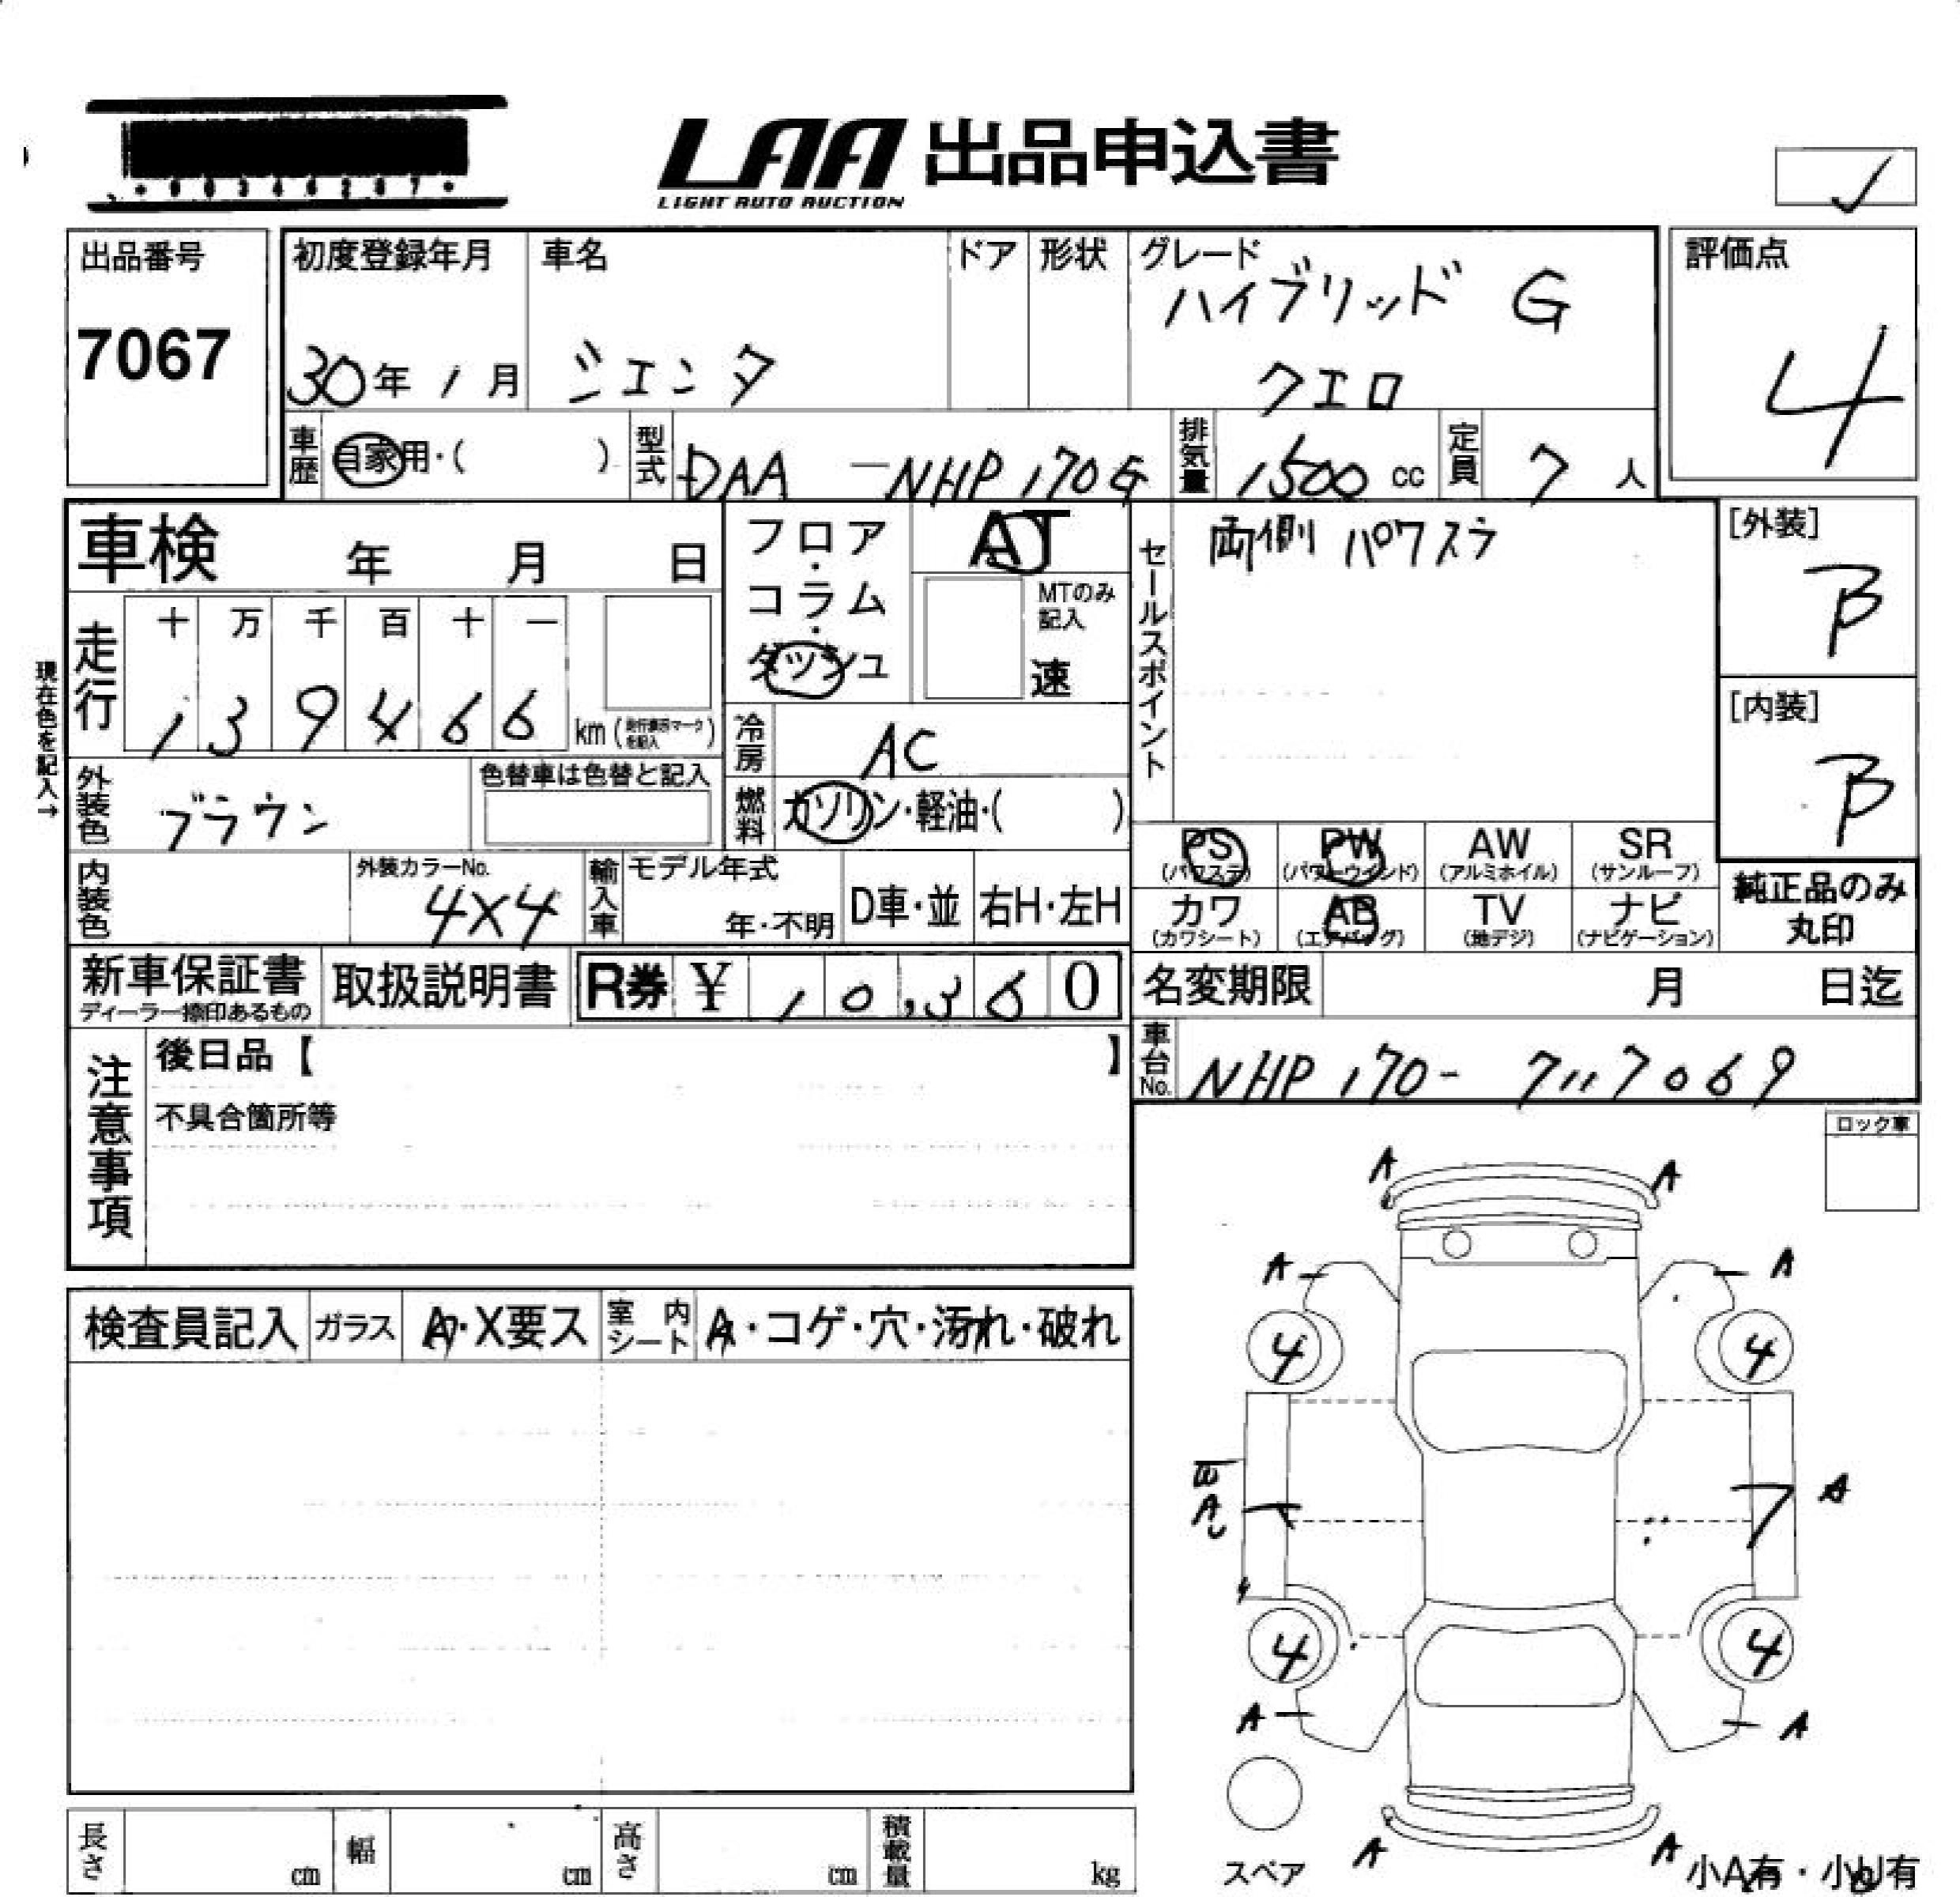 LAA 出品申込書
LIGHT AUTO AUCTION
出品番号
7067
初度登録年月
30年 1月
車名
ジエンタ
ドア
形状
グレード
ハイブリッド G
クエロ
評価点
4
車歴
自家用・( )
型式
DAA-NHP170G
排気量
1500 cc
定員
7 人
車検 年 月 日
フロア・コラム・ダッシュ
AT
MTのみ記入
速
セールスポイント
両側パワスラ
[外装]
B
[内装]
B
現在色を記入→
走行
十 万 千 百 十 一
1 3 9 4 6 6 km
冷房
AC
外装色
ブラウン
色替車は色替と記入
燃料
ガソリン・軽油・( )
PS (パワステ)
PW (パワーウインド)
AW (アルミホイル)
SR (サンルーフ)
カワ (カワシート)
AB (エアバッグ)
TV (地デジ)
ナビ (ナビゲーション)
純正品のみ
丸印
内装色
外装カラーNo.
4X4
輸入車
モデル年式
年・不明
D車・並
右H・左H
新車保証書
ディーラー捺印あるもの
取扱説明書
R券 ¥ 10,360
名変期限 月 日迄
車台No.
NHP170-7117069
注意事項
後日品【 】
不具合箇所等
ロック車
検査員記入
ガラス
A・X要ス
室内シート
A・コゲ・穴・汚れ・破れ
A A
A A
4 4
A A
4 4
A A
A A
スペア
小A有・小U有
長さ cm
幅 cm
高さ cm
積載量 kg